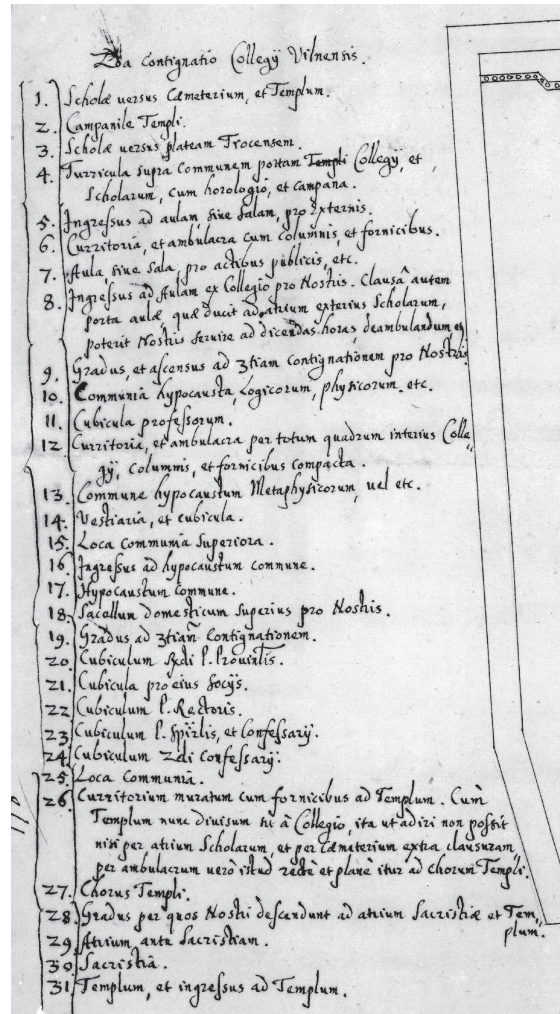 2da Contignatio Collegÿ Vilnensis.
1. Scholæ uersus Cæmeterium, et Templum.
2. Campanile Templi.
3. Scholæ uersus plateam Trocensem.
4. Turricula supra Communem portam Templi Collegÿ, et
Scholarum, cum horologio, et campana.
5. Ingressus ad aulam siue Salam, pro Externis.
6. Curritoria, et ambulacra cum columnis, et fornicibus.
7. Aula, siue Sala, pro actibus publicis, etc.
8. Ingressus ad Aulam ex Collegio pro Nostris. Clausâ autem
porta aulæ quæ ducit ad atrium exterius Scholarum,
poterit Nostris seruire ad dicendas horas, deambulandum
9. Gradus, et ascensus ad 3tiam Contignationem pro Nostris
10. Communia hypocausta, Logicorum, physicorum. etc.
11. Cubicula professorum.
12 Curritoria, et ambulacra per totum quadrum interius Colle-
gÿ, columnis, et fornicibus compacta.
13. Commune hypocaustum Metaphysicorum, uel etc.
14. Vestiaria, et cubicula.
15. Loca Communia Superiora.
16. Ingressus ad hypocaustum commune.
17. Hypocaustum Commune.
18. Sacellum domesticum superius pro Nostris.
19. Gradus ad 3tiam Contignationem.
20. Cubiculum P. Prouintis.
21. Cubicula pro eius socÿs.
22 Cubiculum P. Rectoris.
23. Cubiculum P. Spirlis, et Confessarÿ.
24. Cubiculum 2di Confessarÿ.
25. Loca Communia.
26 Curritorium muratum cum fornicibus ad Templum. Cum
Templum nunc diuisum sit à Collegio, ita ut adiri non possit
nisi per atrium Scholarum, et per Cæmeterium extra clausuram
per ambulacrum uerò istud rectè et planè itur ad Chorum Templi.
27. Chorus Templi.
28. Gradus per quos Nostri descendunt ad atrium Sacristiæ et Tem-
plum.
29. Atrium ante Sacristiam.
30. Sacristia.
31. Templum, et ingressus ad Templum.